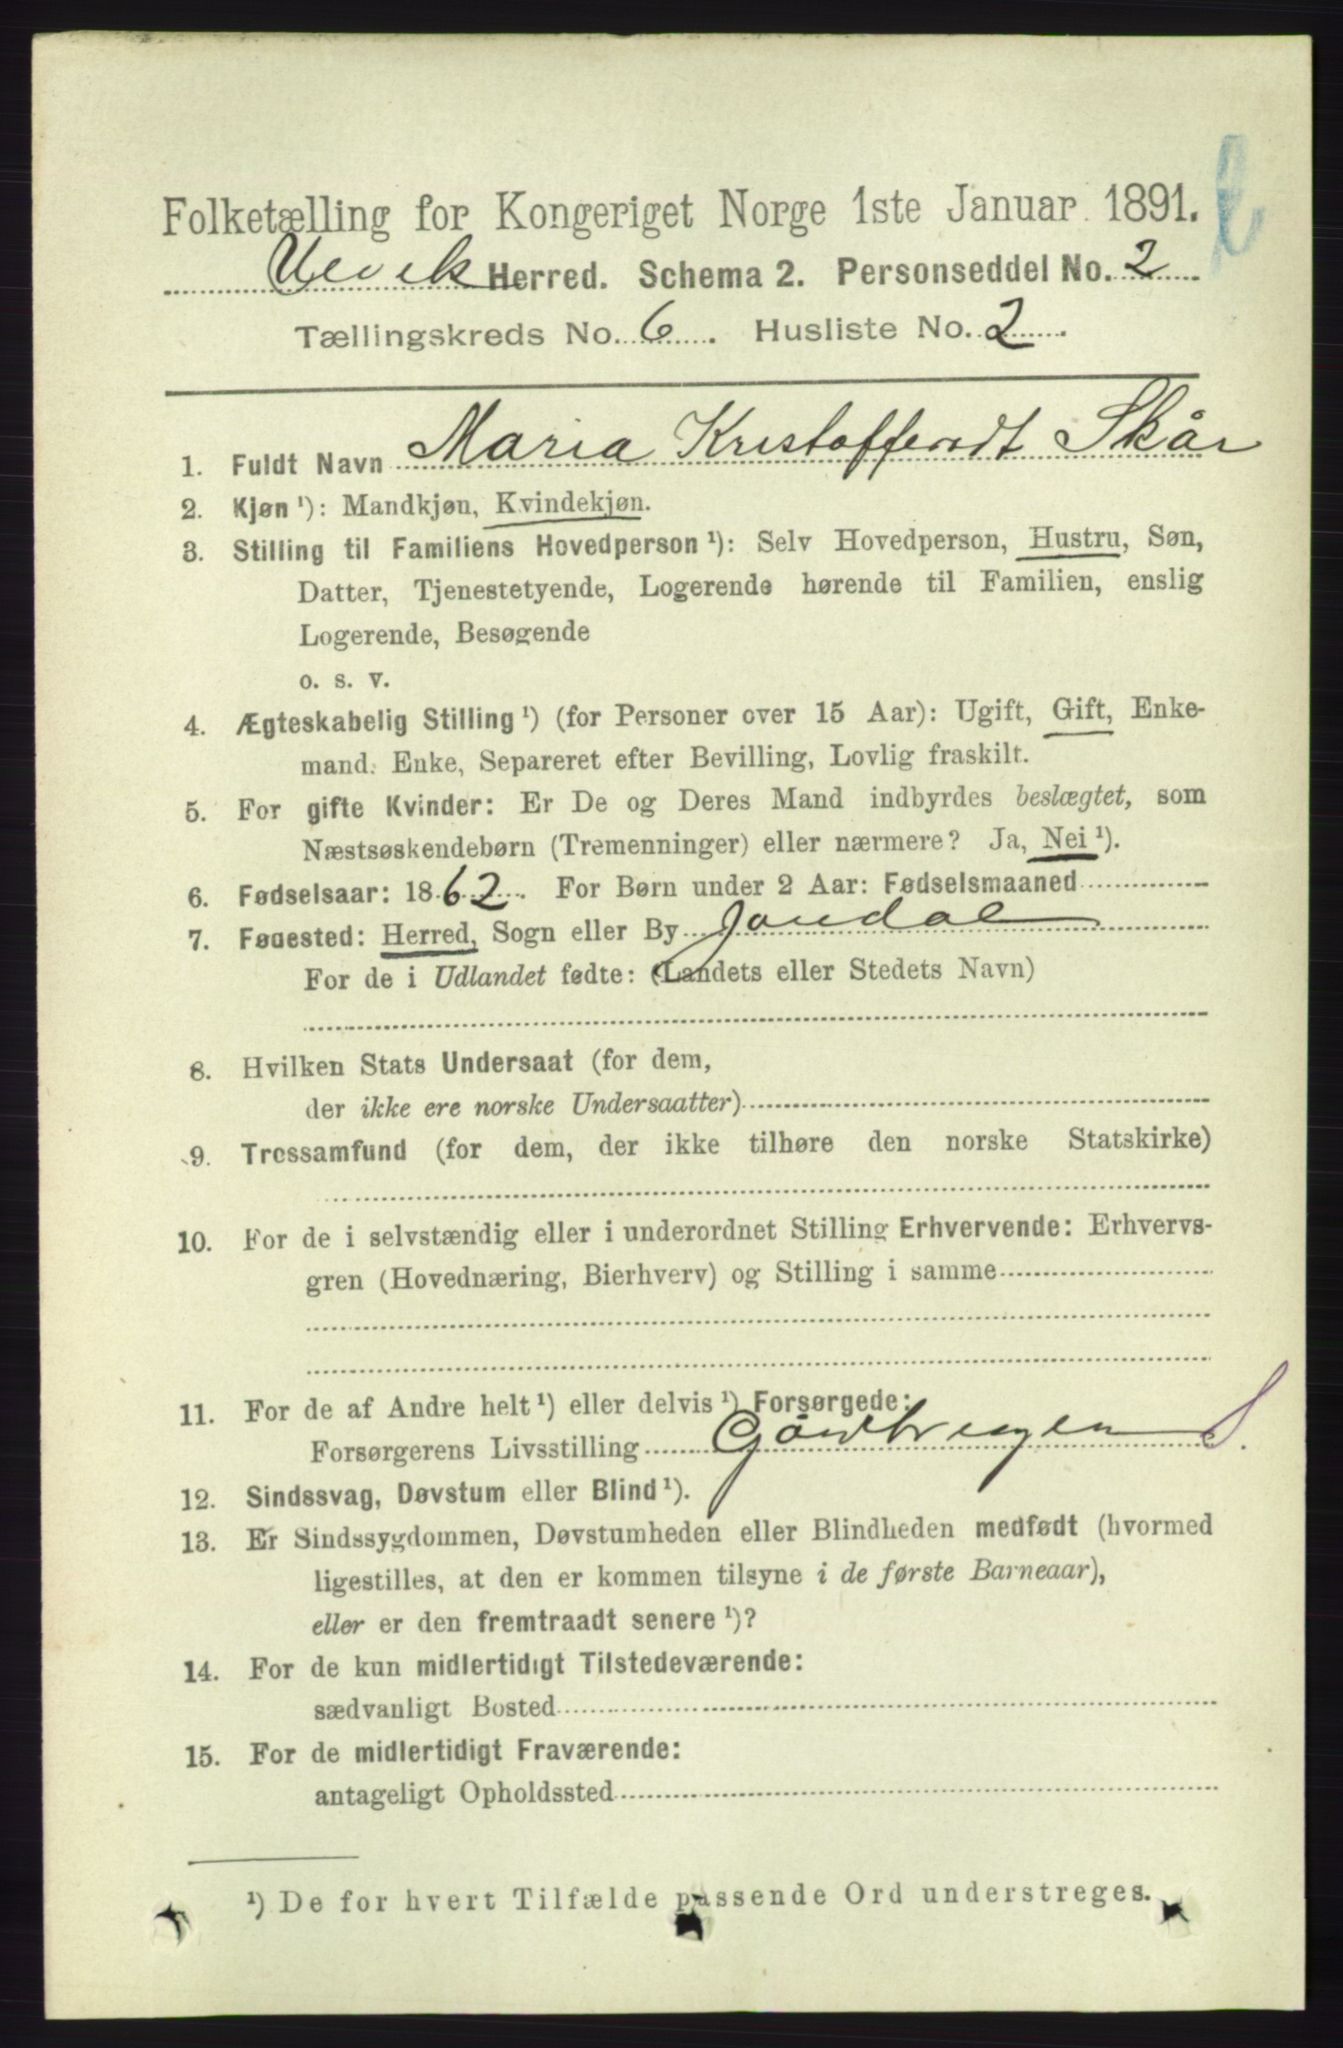 Folketælling for Kongeriget Norge 1ste Januar 1891.
Ulvik Herred. Schema 2. Personseddel No. 2
Tællingskreds No. 6. Husliste No. 2.
1. Fuldt Navn Maria Kristoffersdt Skår
2. Kjøn ¹): Mandkjøn, Kvindekjøn.
3. Stilling til Familiens Hovedperson ¹): Selv Hovedperson, Hustru, Søn,
Datter, Tjenestetyende, Logerende hørende til Familien, enslig
Logerende, Besøgende
o. s. v.
4. Ægteskabelig Stilling ¹) (for Personer over 15 Aar): Ugift, Gift, Enke-
mand. Enke, Separeret efter Bevilling, Lovlig fraskilt.
5. For gifte Kvinder: Er De og Deres Mand indbyrdes beslægtet, som
Næstsøskendebørn (Tremenninger) eller nærmere? Ja, Nei ¹).
6. Fødselsaar: 1862. For Børn under 2 Aar: Fødselsmaaned
7. Fødested: Herred, Sogn eller By Jondal
For de i Udlandet fødte: (Landets eller Stedets Navn)
8. Hvilken Stats Undersaat (for dem,
der ikke ere norske Undersaatter)
9. Trossamfund (for dem, der ikke tilhøre den norske Statskirke)
10. For de i selvstændig eller i underordnet Stilling Erhvervende: Erhvervs-
gren (Hovednæring, Bierhverv) og Stilling i samme
11. For de af Andre helt ¹) eller delvis ¹) Forsørgede:
Forsørgerens Livsstilling Gårdbruger S.
12. Sindssvag, Døvstum eller Blind ¹).
13. Er Sindssygdommen, Døvstumheden eller Blindheden medfødt (hvormed
ligestilles, at den er kommen tilsyne i de første Barneaar),
eller er den fremtraadt senere ¹)?
14. For de kun midlertidigt Tilstedeværende:
sædvanligt Bosted
15. For de midlertidigt Fraværende:
antageligt Opholdssted
¹) De for hvert Tilfælde passende Ord understreges.